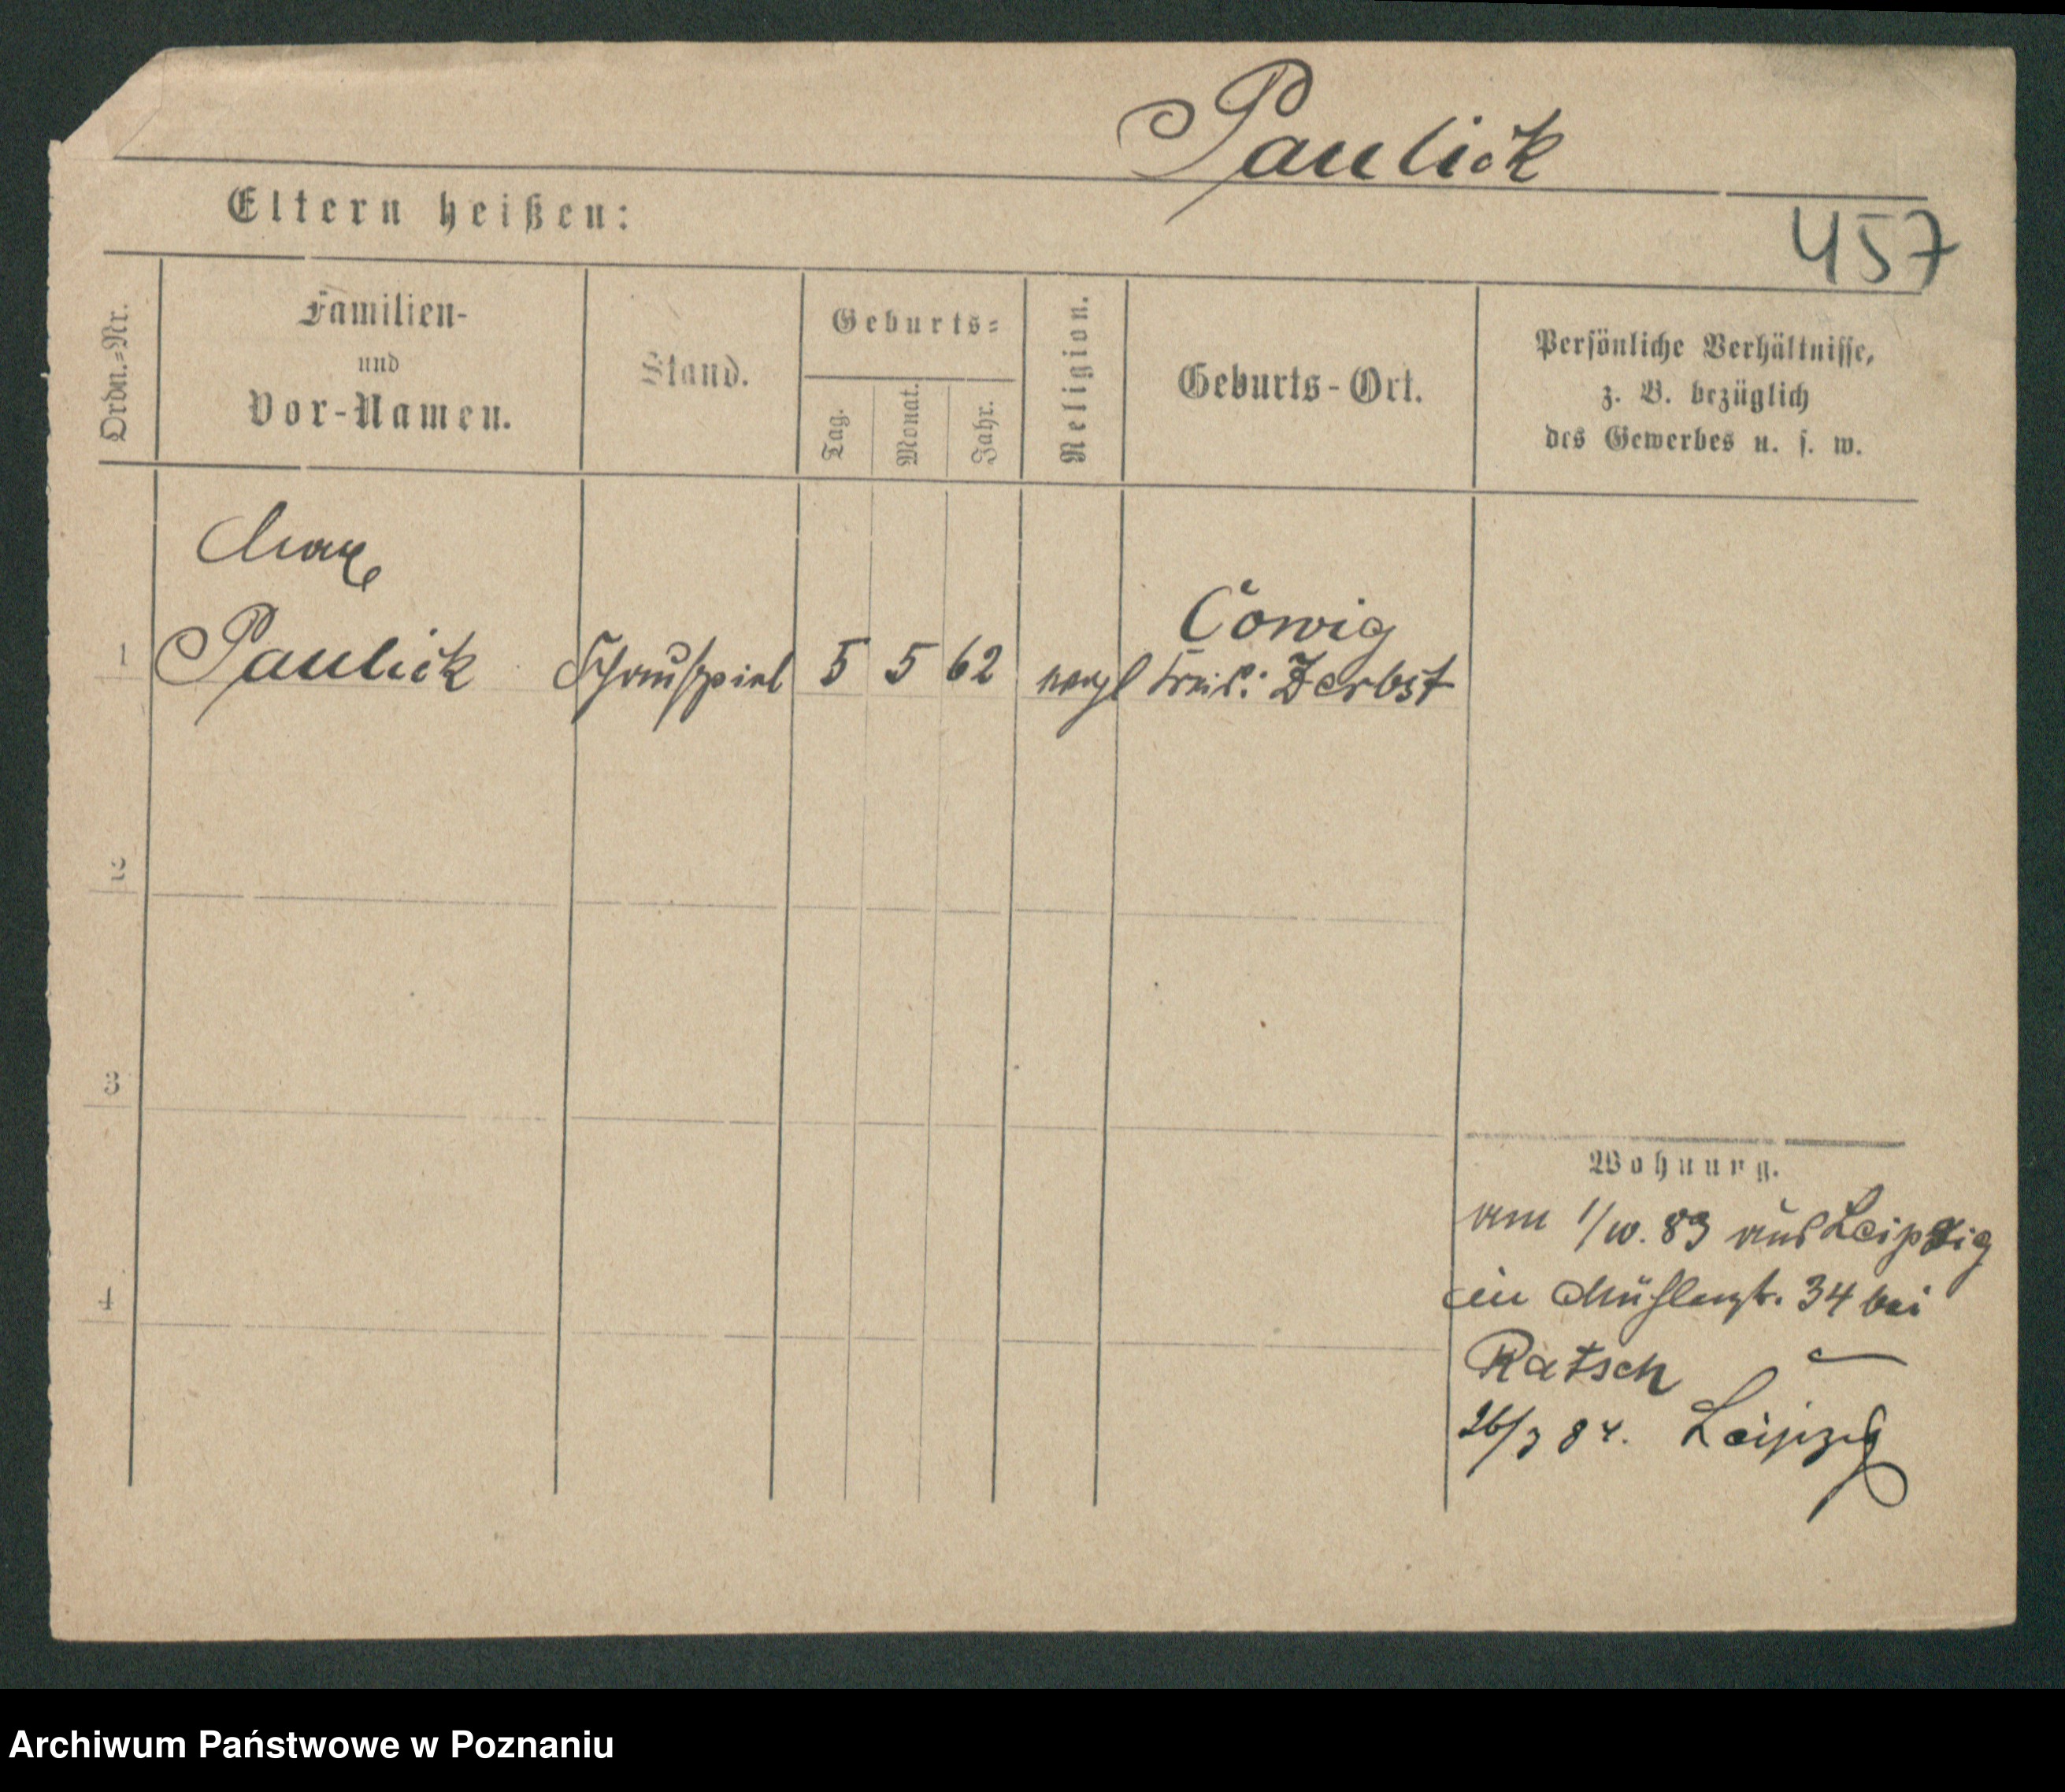 Paulick
457
Eltern heißen:
Ordn.=Nr.
Familien-
und
Vor-Namen.
Stand.
Geburts=
Tag.
Monat.
Jahr.
Religion.
Geburts-Ort.
Persönliche Verhältnisse,
z. B. bezüglich
des Gewerbes u. s. w.
Max
1 Paulick Schauspiel 5 5 62 evgl
Cowig
Kreis: Zerbst
2
3
4
Wohnung.
am 1/10. 83 aus Leipzig
in Mühlenstr. 34 bei
Ratsch
26/3 84. Leipzig
Archiwum Państwowe w Poznaniu